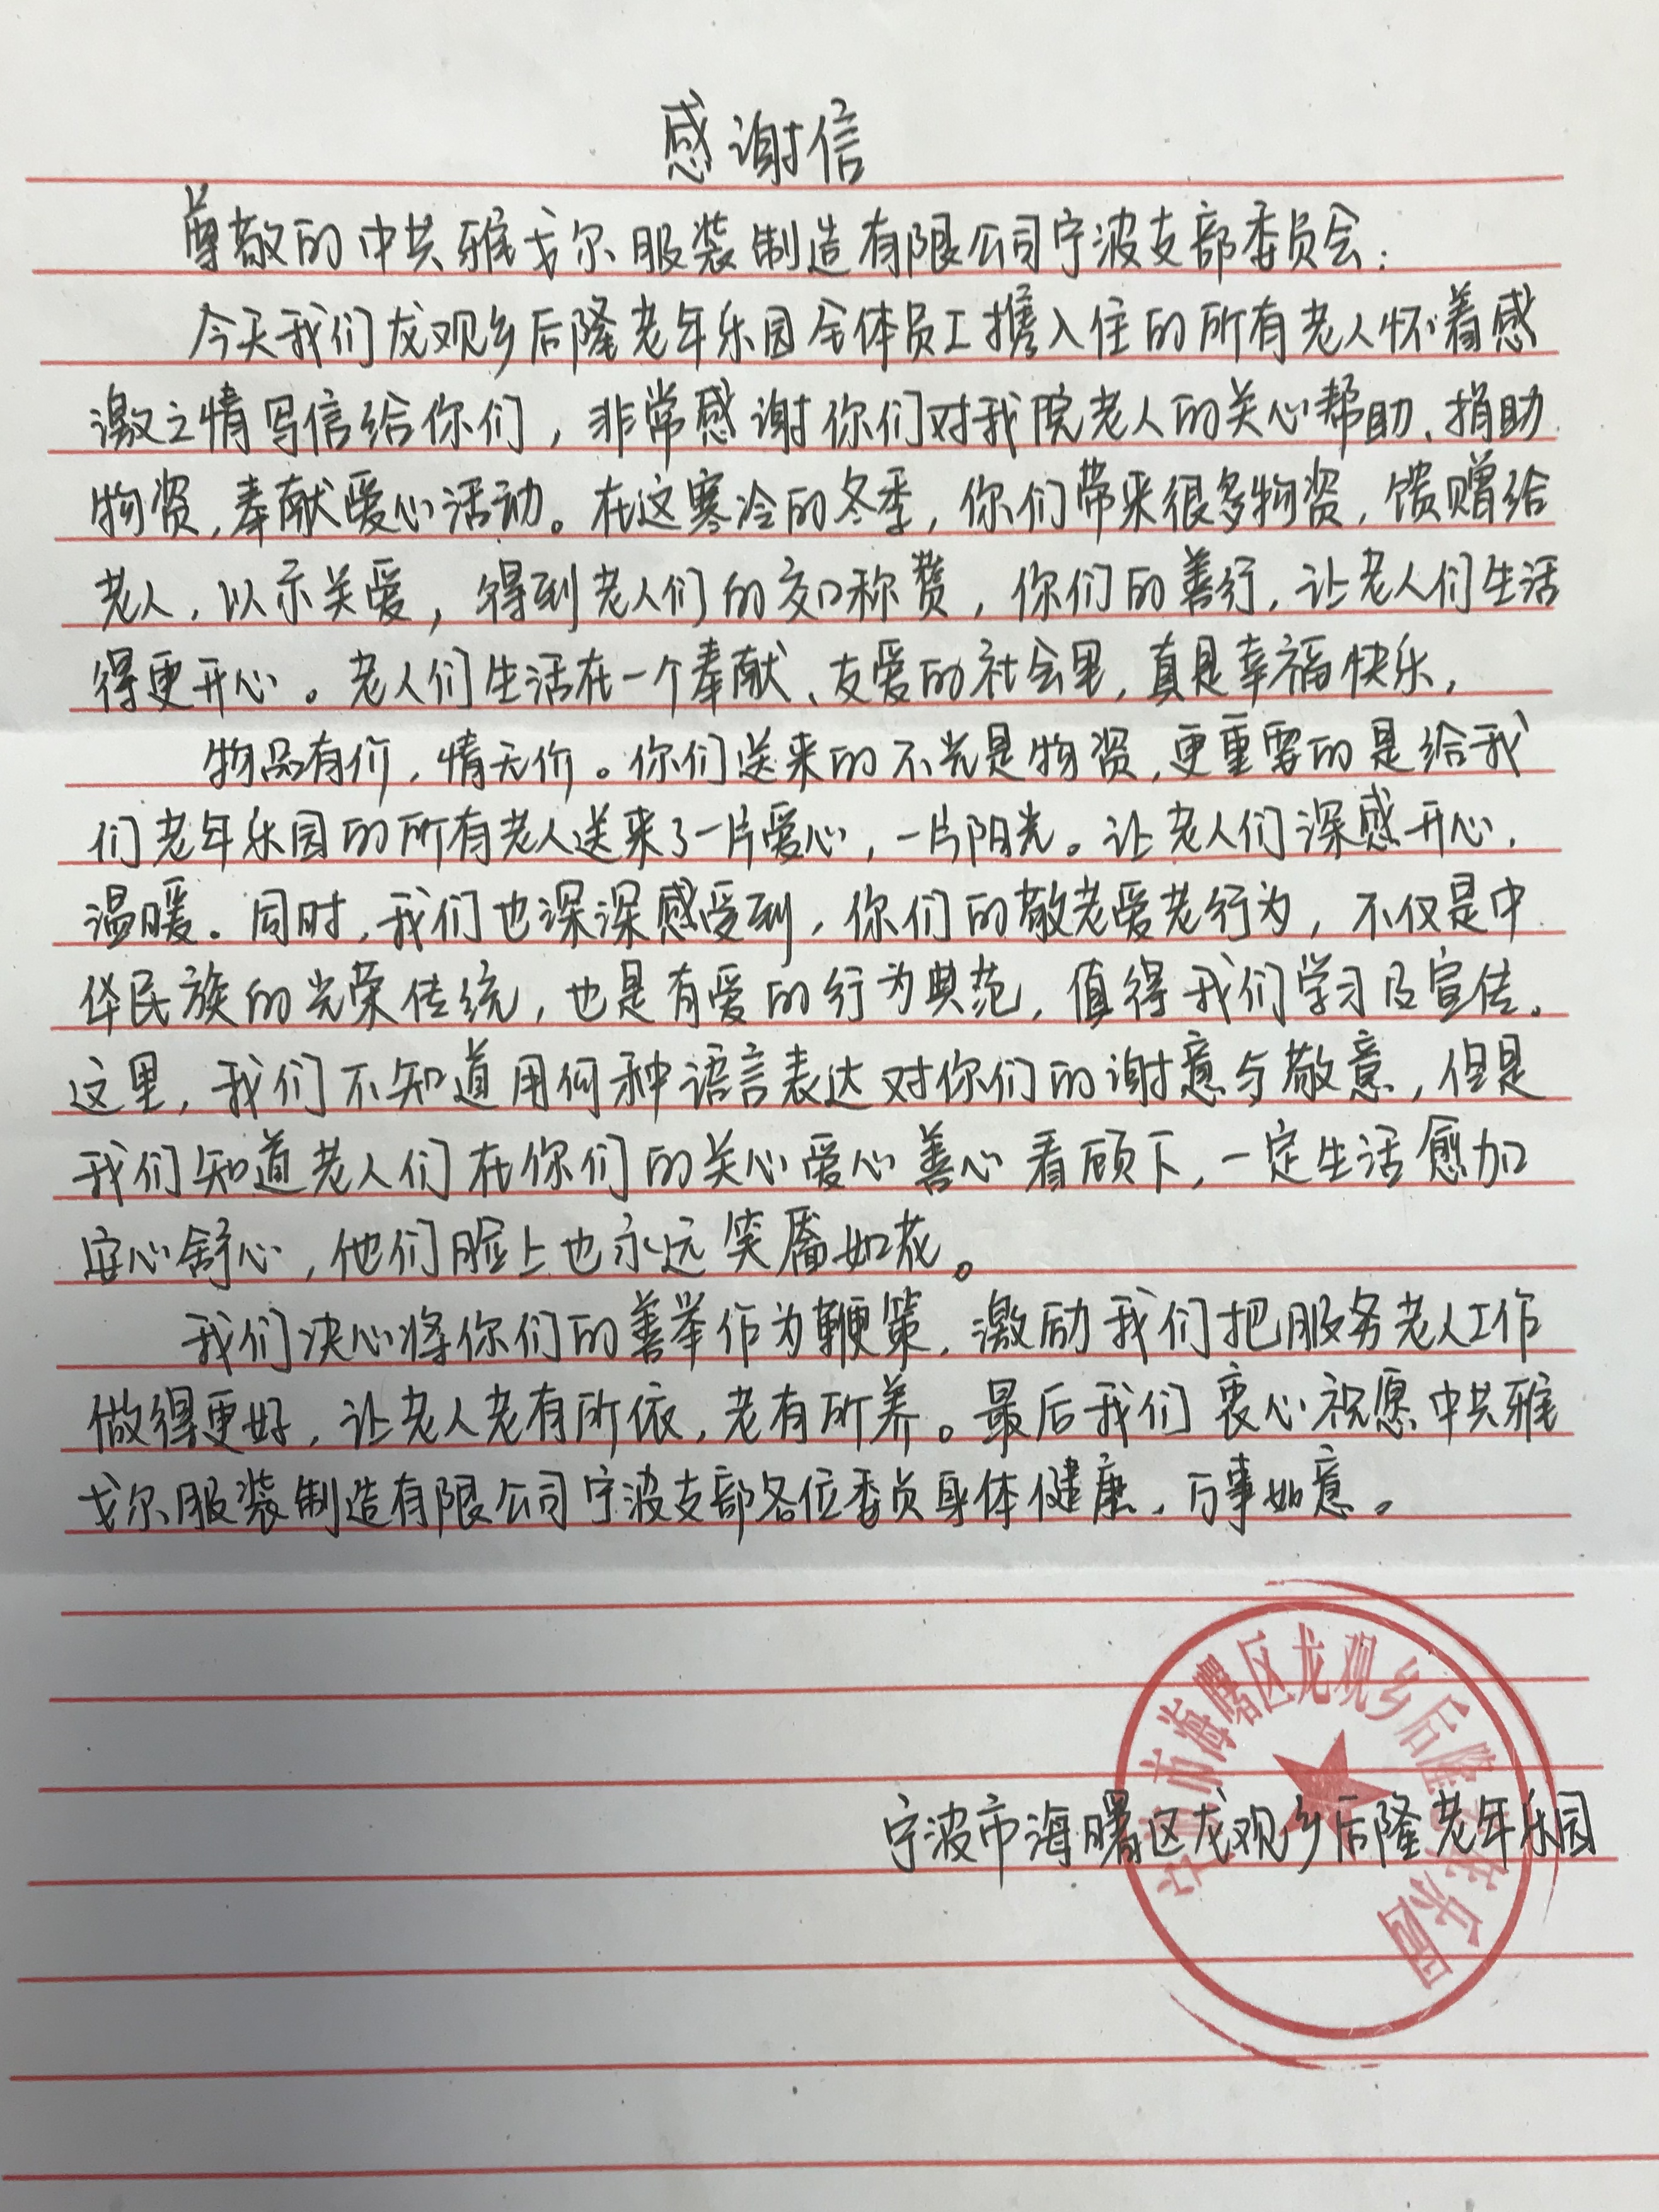 感谢信
尊敬的中共雅戈尔服装制造有限公司宁波支部委员会：
今天我们龙观乡后隆老年乐园全体员工携入住的所有老人怀着感
激之情写信给你们，非常感谢你们对我院老人的关心帮助、捐助
物资，奉献爱心活动。在这寒冷的冬季，你们带来很多物资，馈赠给
老人，以示关爱，得到老人们的交口称赞，你们的善行，让老人们生活
得更开心。老人们生活在一个奉献、友爱的社会里，真是幸福快乐，
物品有价，情无价。你们送来的不光是物资，更重要的是给我
们老年乐园的所有老人送来了一片爱心，一片阳光。让老人们深感开心，
温暖。同时，我们也深深感受到，你们的敬老爱老行为，不仅是中
华民族的光荣传统，也是有爱的行为典范，值得我们学习及宣传。
这里，我们不知道用何种语言表达对你们的谢意与敬意，但是
我们知道老人们在你们的关心爱心善心看顾下，一定生活愈加
安心舒心，他们脸上也永远笑靥如花。
我们决心将你们的善举作为鞭策，激励我们把服务老人工作
做得更好，让老人老有所依，老有所养。最后我们衷心祝愿中共雅
戈尔服装制造有限公司宁波支部各位委员身体健康，万事如意。
宁波市海曙区龙观乡后隆老年乐园
宁波市海曙区龙观乡后隆老年乐园